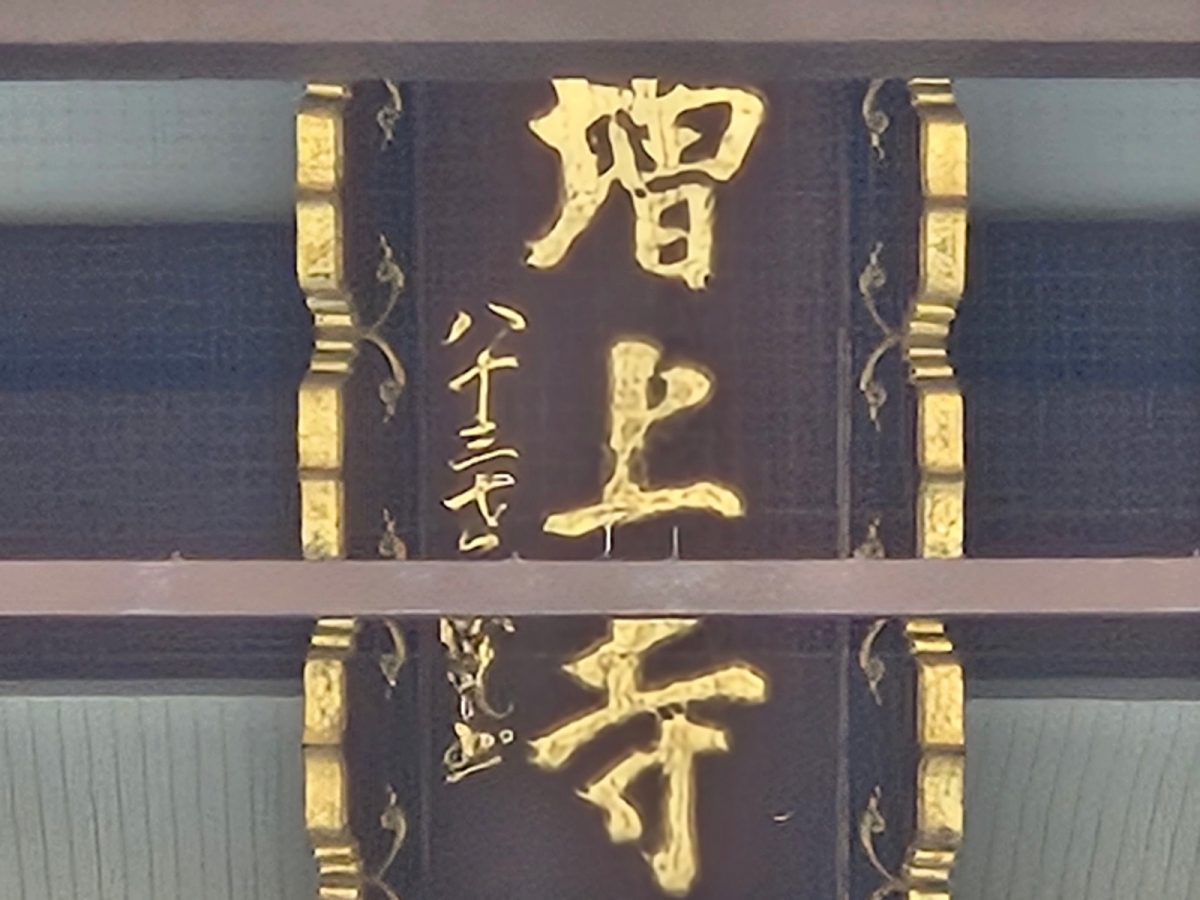 増上寺
八十三